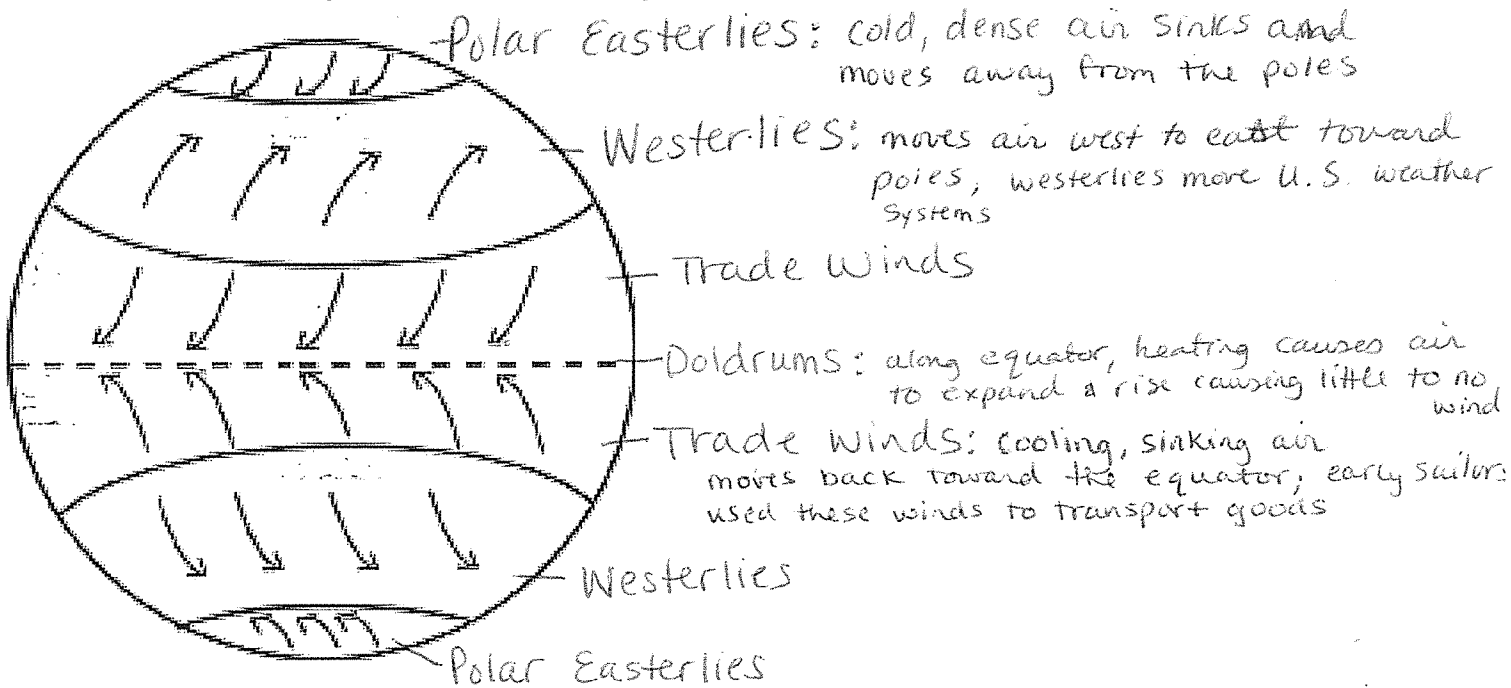 Polar Easterlies: cold, dense air sinks and
moves away from the poles
Westerlies: moves air west to east toward
poles, westerlies move U.S. weather
systems
Trade Winds
Doldrums: along equator, heating causes air
to expand & rise causing little to no
wind
Trade Winds: cooling, sinking air
moves back toward the equator; early sailors
used these winds to transport goods
Westerlies
Polar Easterlies